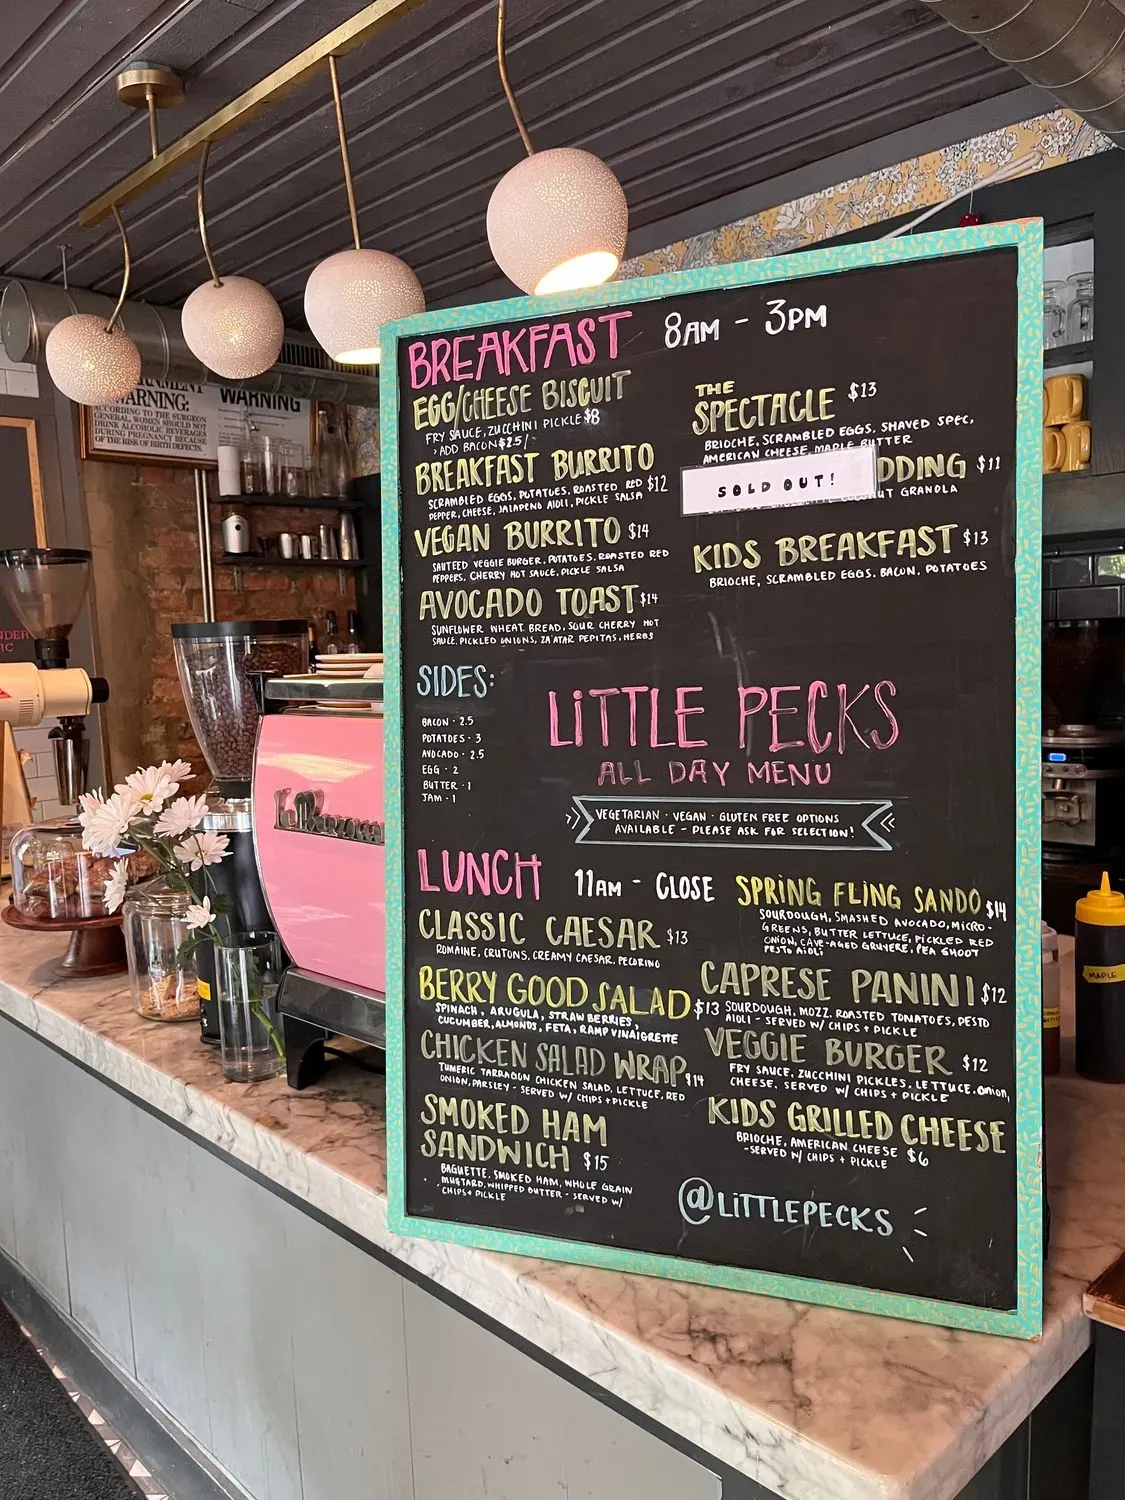 BREAKFAST 8AM - 3PM
EGG/CHEESE BISCUIT
FRY SAUCE, ZUCCHINI PICKLE $8
> ADD BACON $2.5/
BREAKFAST BURRITO
SCRAMBLED EGGS, POTATOES, ROASTED RED $12
PEPPER, CHEESE, JALAPENO AIOLI, PICKLE SALSA
VEGAN BURRITO $14
SAUTEED VEGGIE BURGER, POTATOES, ROASTED RED
PEPPERS, CHERRY HOT SAUCE, PICKLE SALSA
AVOCADO TOAST $14
SUNFLOWER WHEAT BREAD, SOUR CHERRY HOT
SAUCE, PICKLED ONIONS, ZA'ATAR PEPITAS, HERBS
THE
SPECTACLE $13
BRIOCHE, SCRAMBLED EGGS, SHAVED SPEC,
AMERICAN CHEESE, MAPLE BUTTER
DDING $11
SOLD OUT!
GRANOLA
KIDS BREAKFAST $13
BRIOCHE, SCRAMBLED EGGS, BACON, POTATOES
SIDES:
BACON - 2.5
POTATOES - 3
AVOCADO - 2.5
EGG - 2
BUTTER - 1
JAM - 1
LiTTLE PECKS
ALL DAY MENU
VEGETARIAN · VEGAN · GLUTEN FREE OPTIONS
AVAILABLE - PLEASE ASK FOR SELECTION!
LUNCH 11AM - CLOSE
CLASSIC CAESAR $13
ROMAINE, CRUTONS, CREAMY CAESAR, PECORINO
BERRY GOOD SALAD $13
SPINACH, ARUGULA, STRAWBERRIES,
CUCUMBER, ALMONDS, FETA, RAMP VINAIGRETTE
CHICKEN SALAD WRAP $14
TUMERIC TARRAGON CHICKEN SALAD, LETTUCE, RED
ONION, PARSLEY - SERVED W/ CHIPS + PICKLE
SMOKED HAM
SANDWICH $15
BAGUETTE, SMOKED HAM, WHOLE GRAIN
MUSTARD, WHIPPED BUTTER - SERVED W/
CHIPS + PICKLE
SPRING FLING SANDO $14
SOURDOUGH, SMASHED AVOCADO, MICRO-
GREENS, BUTTER LETTUCE, PICKLED RED
ONION, CAVE-AGED GRUYERE, PEA SHOOT
PESTO AIOLI
CAPRESE PANINI $12
SOURDOUGH, MOZZ, ROASTED TOMATOES, PESTO
AIOLI - SERVED W/ CHIPS + PICKLE
VEGGIE BURGER $12
FRY SAUCE, ZUCCHINI PICKLES, LETTUCE, onion,
CHEESE, SERVED W/ CHIPS + PICKLE
KIDS GRILLED CHEESE
BRIOCHE, AMERICAN CHEESE $6
-SERVED W/ CHIPS + PICKLE
@LiTTLEPECKS
WARNING:
ACCORDING TO THE SURGEON
GENERAL, WOMEN SHOULD NOT
DRINK ALCOHOLIC BEVERAGES
DURING PREGNANCY BECAUSE
OF THE RISK OF BIRTH DEFECTS.
WARNING
MAPLE